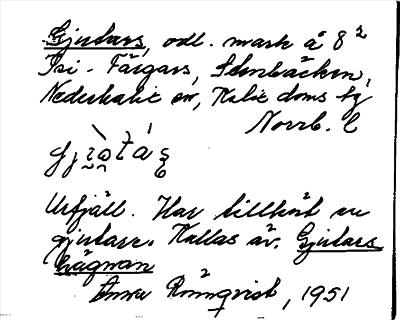 Gjutars, odl. mark å 8²
Tsi - Färgars, Stenbäcken,
Nederkalix sn, Kalix doms bg
Norrb. l
Utfjäll. Har tillhört en
gjutare. Kallas äv. Gjutars
hägnan
Anna Rönnqvist, 1951